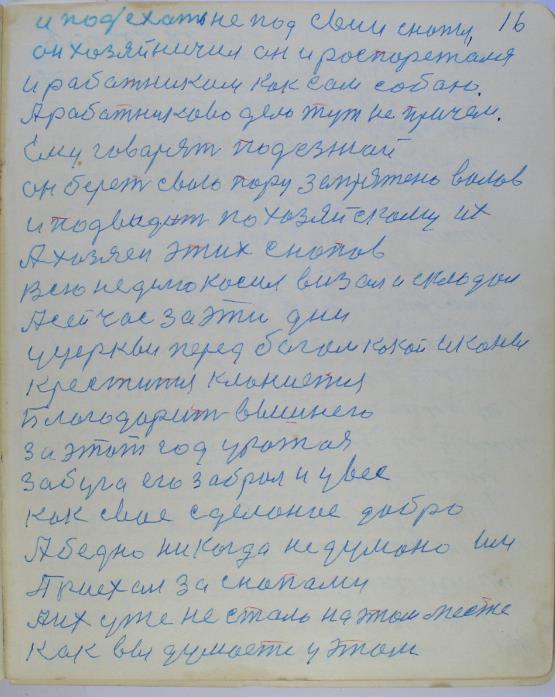 и подъехать не под свои снопы 16
он хозяйничил он и роспорежался
и работником как сам собаю.
А работниково дело тут не причем.
Ему говарят подезжай
он берет свою пору запрятено валов
и подвидит по хозяйскому их
А хозяен этих снопов
всю неделю косил вязал и склодал
А сейчас за эти дни
у церкви перед богом какой иконы
крестится клонится
Благодорит вышнего
за этот год урожая
забуга его забрал и увес
как свое сделоное добро
А бедно никогда недумоно им
Приехал за снопами
Аих уже не стало на этом месте
как вы думаете у этом